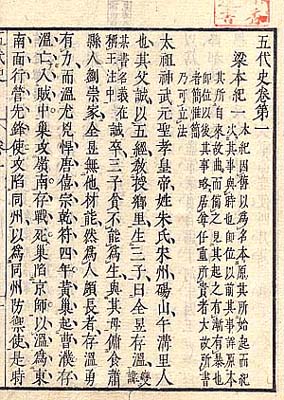 五代史卷第一
梁本紀一
本紀因舊以爲名本原其所始起而紀
次其事與時也即位以前其事詳原本
其所自來故曲而備之見其起之有漸有暴也
即位以後其事略居尊任重所責者大故所書
者簡惟簡
乃可立法
太祖神武元聖孝皇帝姓朱氏宋州碭山午溝里人
也其父誠以五經教授鄉里生三子曰全昱存溫
變
諱
某書名義在
稱王注中
誠卒三子貧不能爲生與其母傭食蕭
縣人劉崇家全昱無他材能然爲人頗長者存溫勇
有力而溫尤兇悍唐僖宗乾符四年黃巢起曹濮存
溫亡入賊中巢攻嶺南存戰死巢陷京師以溫爲東
南面行營先鋒使攻陷同州以爲同州防禦使是時